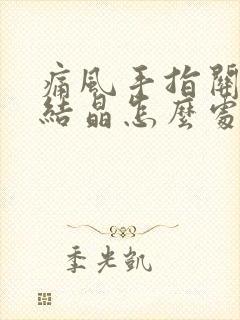 痛風手指關
結晶怎麼處
季光凱